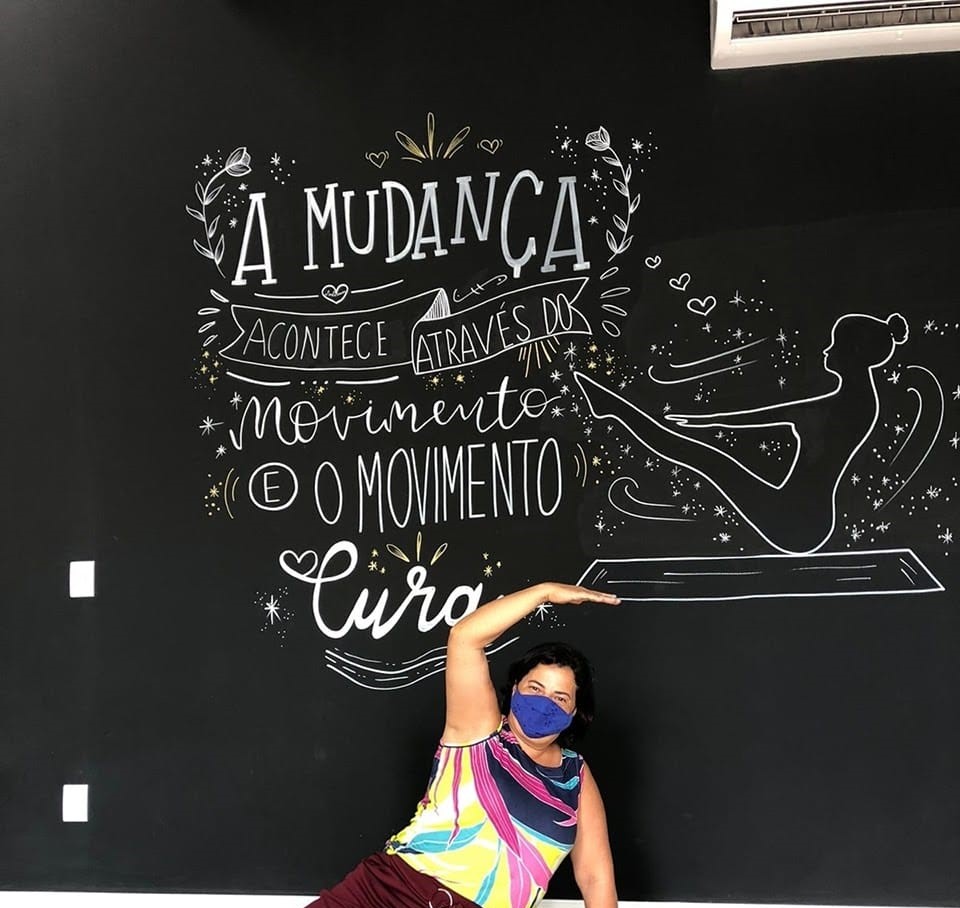 A MUDANÇA
ACONTECE ATRAVÉS DO
Movimento
E O MOVIMENTO
Cura